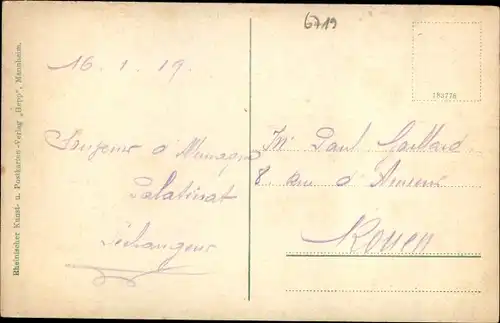 6719
16. 1. 19.
d'
Palatinat
Mr Paul Gaillard
8 rue d'Amiens
Rouen
183776
Rheinischer Kunst- u. Postkarten-Verlag „Hepp", Mannheim.